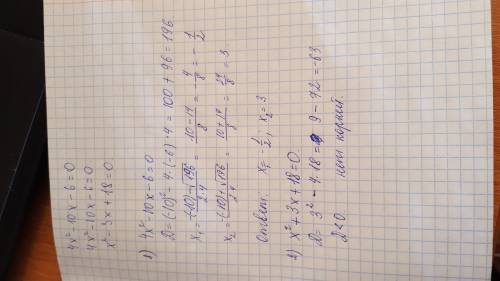 4x²-10x-6=0
4x²-10x-6=0
x²-3x+18=0
1) 4x²-10x-6=0
D=(-10)²-4·(-6)·4=100+96=196
x₁=(-(10)-√196)/(2·4)=(10-14)/8=-4/8=-1/2
x₂=(-(10)+√196)/(2·4)=(10+14)/8=24/8=3
Ответ: x₁=-1/2, x₂=3
2) x²+3x+18=0
D=3²-4·18=9-72=-63
D<0 нет корней.